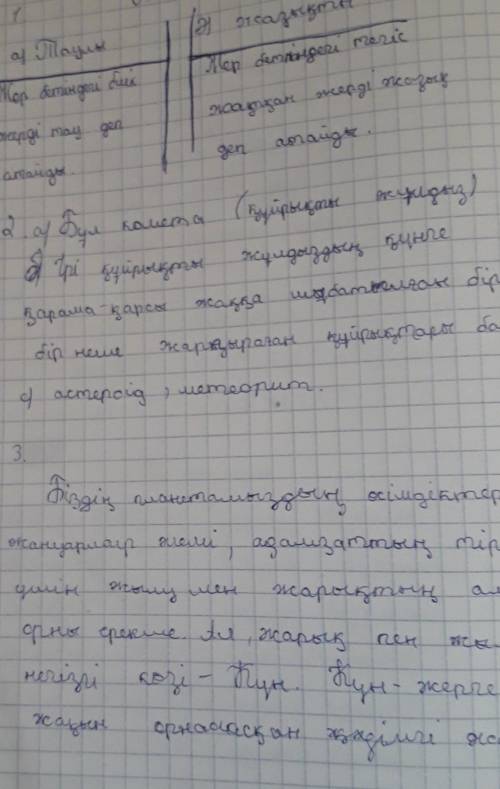 1
а) Таулы
ә) жазықты
Жер бетіндегі биік
жерді тау деп
атайды.
Жер бетіндегі тегіс
жатқан жерді жазық
деп атайды.
2. а) Бұл комета (құйрықты жұлдыз)
ә) Ірі құйрықты жұлдыздың күнге
қарама-қарсы жаққа бір
бір неше жарқыраған құйрықтары ба
с) астероид, метеорит.
3.
Біздің планетамыздың өсімдіктер
жануарлар әлемі, адамзаттың тір
үшін жылу мен жарықтың ал
орны ерекше. Ал, жарық пен жы
негізгі көзі - Күн. Күн - жерге
жақын орналасқан кәдімгі